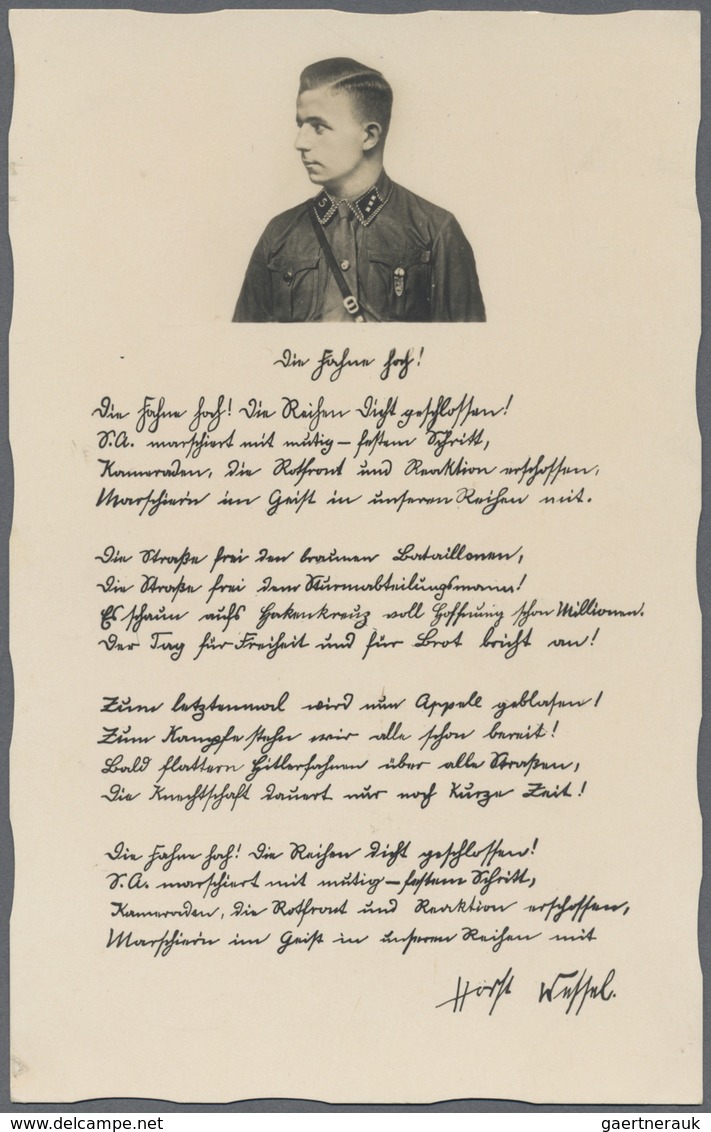 Die Fahne hoch!
Die Fahne hoch! Die Reihen dicht geschlossen!
S.A. marschiert mit mutig-festem Schritt,
Kameraden, die Rotfront und Reaktion erschossen,
Marschier'n im Geist in unseren Reihen mit.
Die Straße frei den braunen Bataillonen,
Die Straße frei dem Sturmabteilungsmann!
Es schaun aufs Hakenkreuz voll Hoffnung schon Millionen.
Der Tag für Freiheit und für Brot bricht an!
Zum letztenmal wird nun Appell geblasen!
Zum Kampfe stehn wir alle schon bereit!
Bald flattern Hitlerfahnen über alle Straßen,
Die Knechtschaft dauert nur noch kurze Zeit!
Die Fahne hoch! Die Reihen dicht geschlossen!
S.A. marschiert mit mutig-festem Schritt,
Kameraden, die Rotfront und Reaktion erschossen,
Marschier'n im Geist in unseren Reihen mit
Horst Wessel.
gaertnerauk